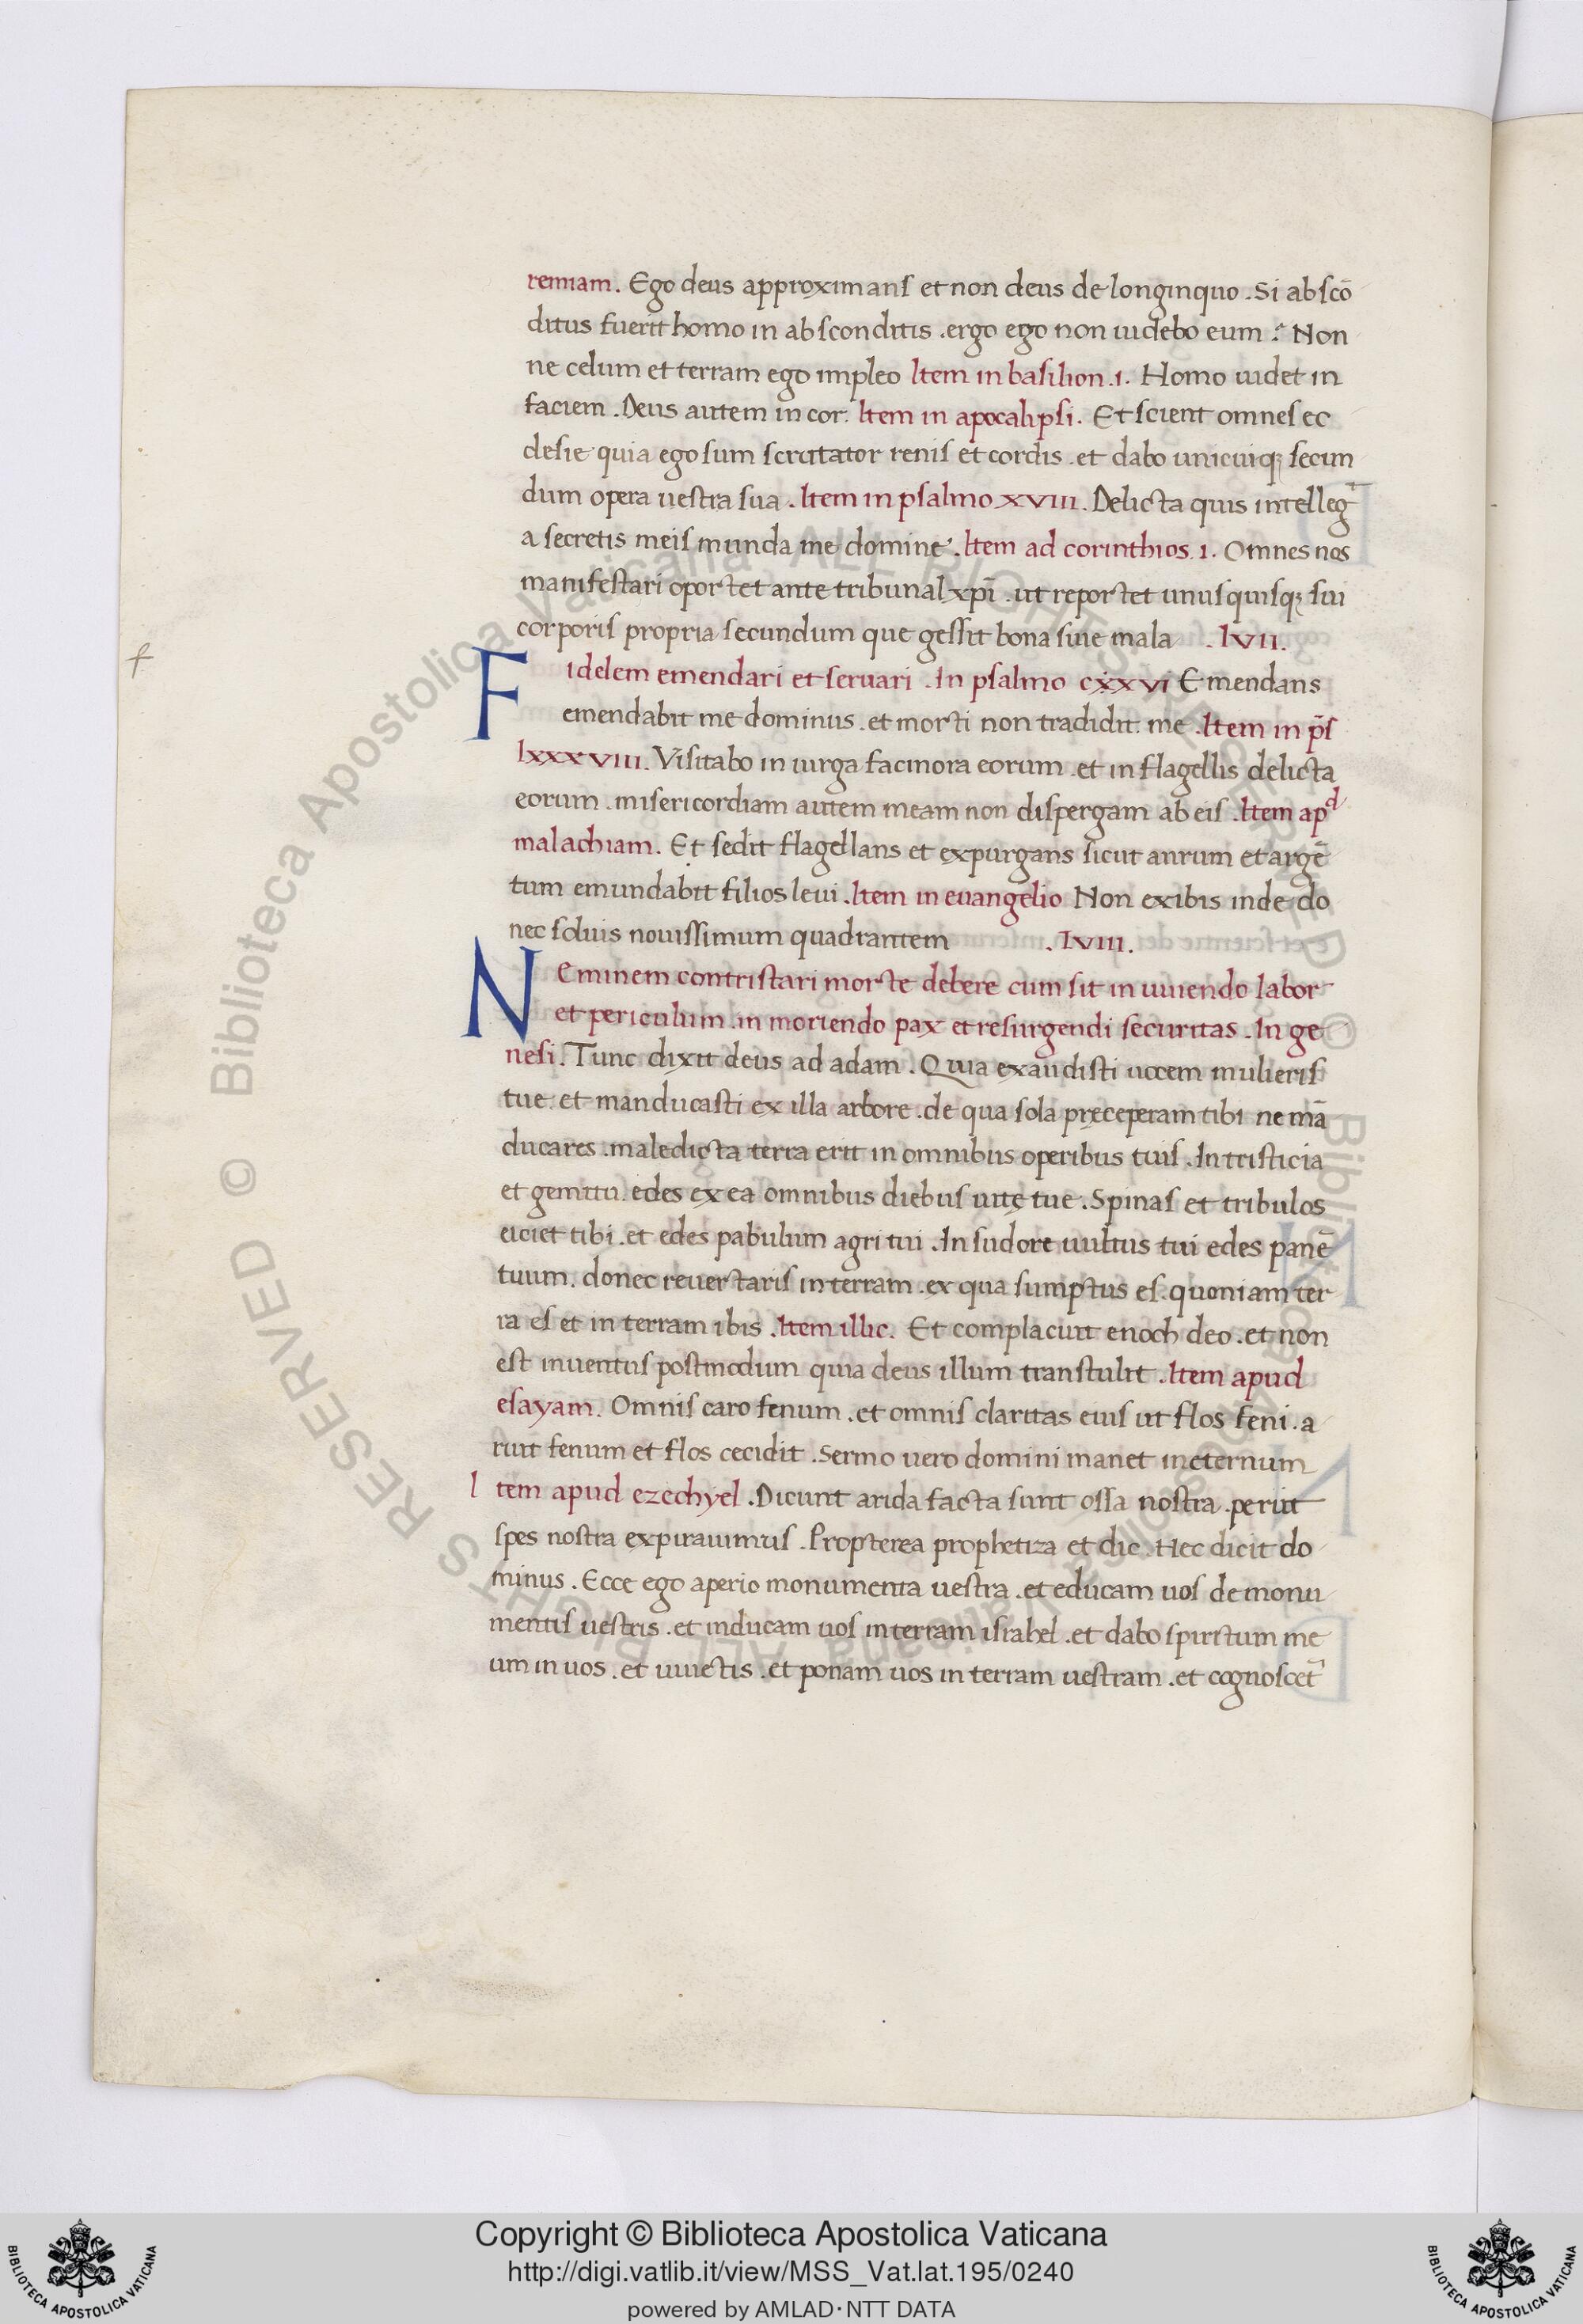 remiam. Ego deus approximans et non deus de longinquo. Si abscō
ditus fuerit homo in absconditis. ergo ego non uidebo eum? Non
ne celum et terram ego impleo Item in basilion. I. Homo uidet in
faciem. Deus autem in cor. Item in apocalipsi. Et scient omnes ec
clesie quia ego sum scrutator renis et cordis. et dabo unicuiqꝫ secun
dum opera uestra sua. Item in psalmo XVIII. Delicta quis intelleg̃
a secretis meis munda me domine. Item ad corinthios. I. Omnes nos
manifestari oportet ante tribunal xpī. ut reportet unusquisqꝫ sui
corporis propria secundum que gessit bona siue mala .lvII.
Fidelem emendari et seruari. In psalmo cxxvi Emendans
emendabit me dominus. et morti non tradidit me. Item in p̄s
lxxxvIII. Visitabo in uirga facinora eorum. et in flagellis delicta
eorum. misericordiam autem meam non dispergam ab eis. Item apᵈ
malachiam. Et sedit flagellans et expurgans sicut aurum et argē
tum emundabit filios leui. Item in euangelio Non exibis inde do
nec soluis nouissimum quadrantem .lvIII.
Neminem contristari morte debere cum sit in uiuendo labor
et periculum. in moriendo pax et resurgendi securitas. In ge
nesi. Tunc dixit deus ad adam. Quia exaudisti uocem mulieris
tue. et manducasti ex illa arbore. de qua sola pręceperam tibi ne mā
ducares. maledicta terra erit in omnibus operibus tuis. In tristicia
et gemitu edes ex ea omnibus diebus uitę tue. Spinas et tribulos
eiciet tibi. et edes pabulum agri tui. In sudore uultus tui edes panē
tuum. donec reuertaris in terram. ex qua sumptus es. quoniam ter
ra es et in terram ibis. Item illic. Et complacuit enoch deo. et non
est inuentus postmodum quia deus illum transtulit. Item apud
esayam. Omnis caro fenum. et omnis claritas eius ut flos feni. a
ruit fenum et flos cecidit. Sermo uero domini manet in eternum
Item apud ezechyel. Dicunt arida facta sunt ossa nostra. periit
spes nostra expirauimus. Propterea prophetiza et dic. Hec dicit do
minus. Ecce ego aperio monumenta uestra. et educam uos de monu
mentis uestris. et inducam uos in terram israhel. et dabo spiritum me
um in uos. et uiuetis. et ponam uos in terram uestram. et cognoscet̃
Copyright © Biblioteca Apostolica Vaticana
http://digi.vatlib.it/view/MSS_Vat.lat.195/0240
powered by AMLAD·NTT DATA
BIBLIOTECA APOSTOLICA VATICANA
BIBLIOTECA APOSTOLICA VATICANA
© Biblioteca Apostolica Vaticana ALL RIGHTS RESERVED
© Biblioteca Apostolica Vaticana ALL RIGHTS RESERVED